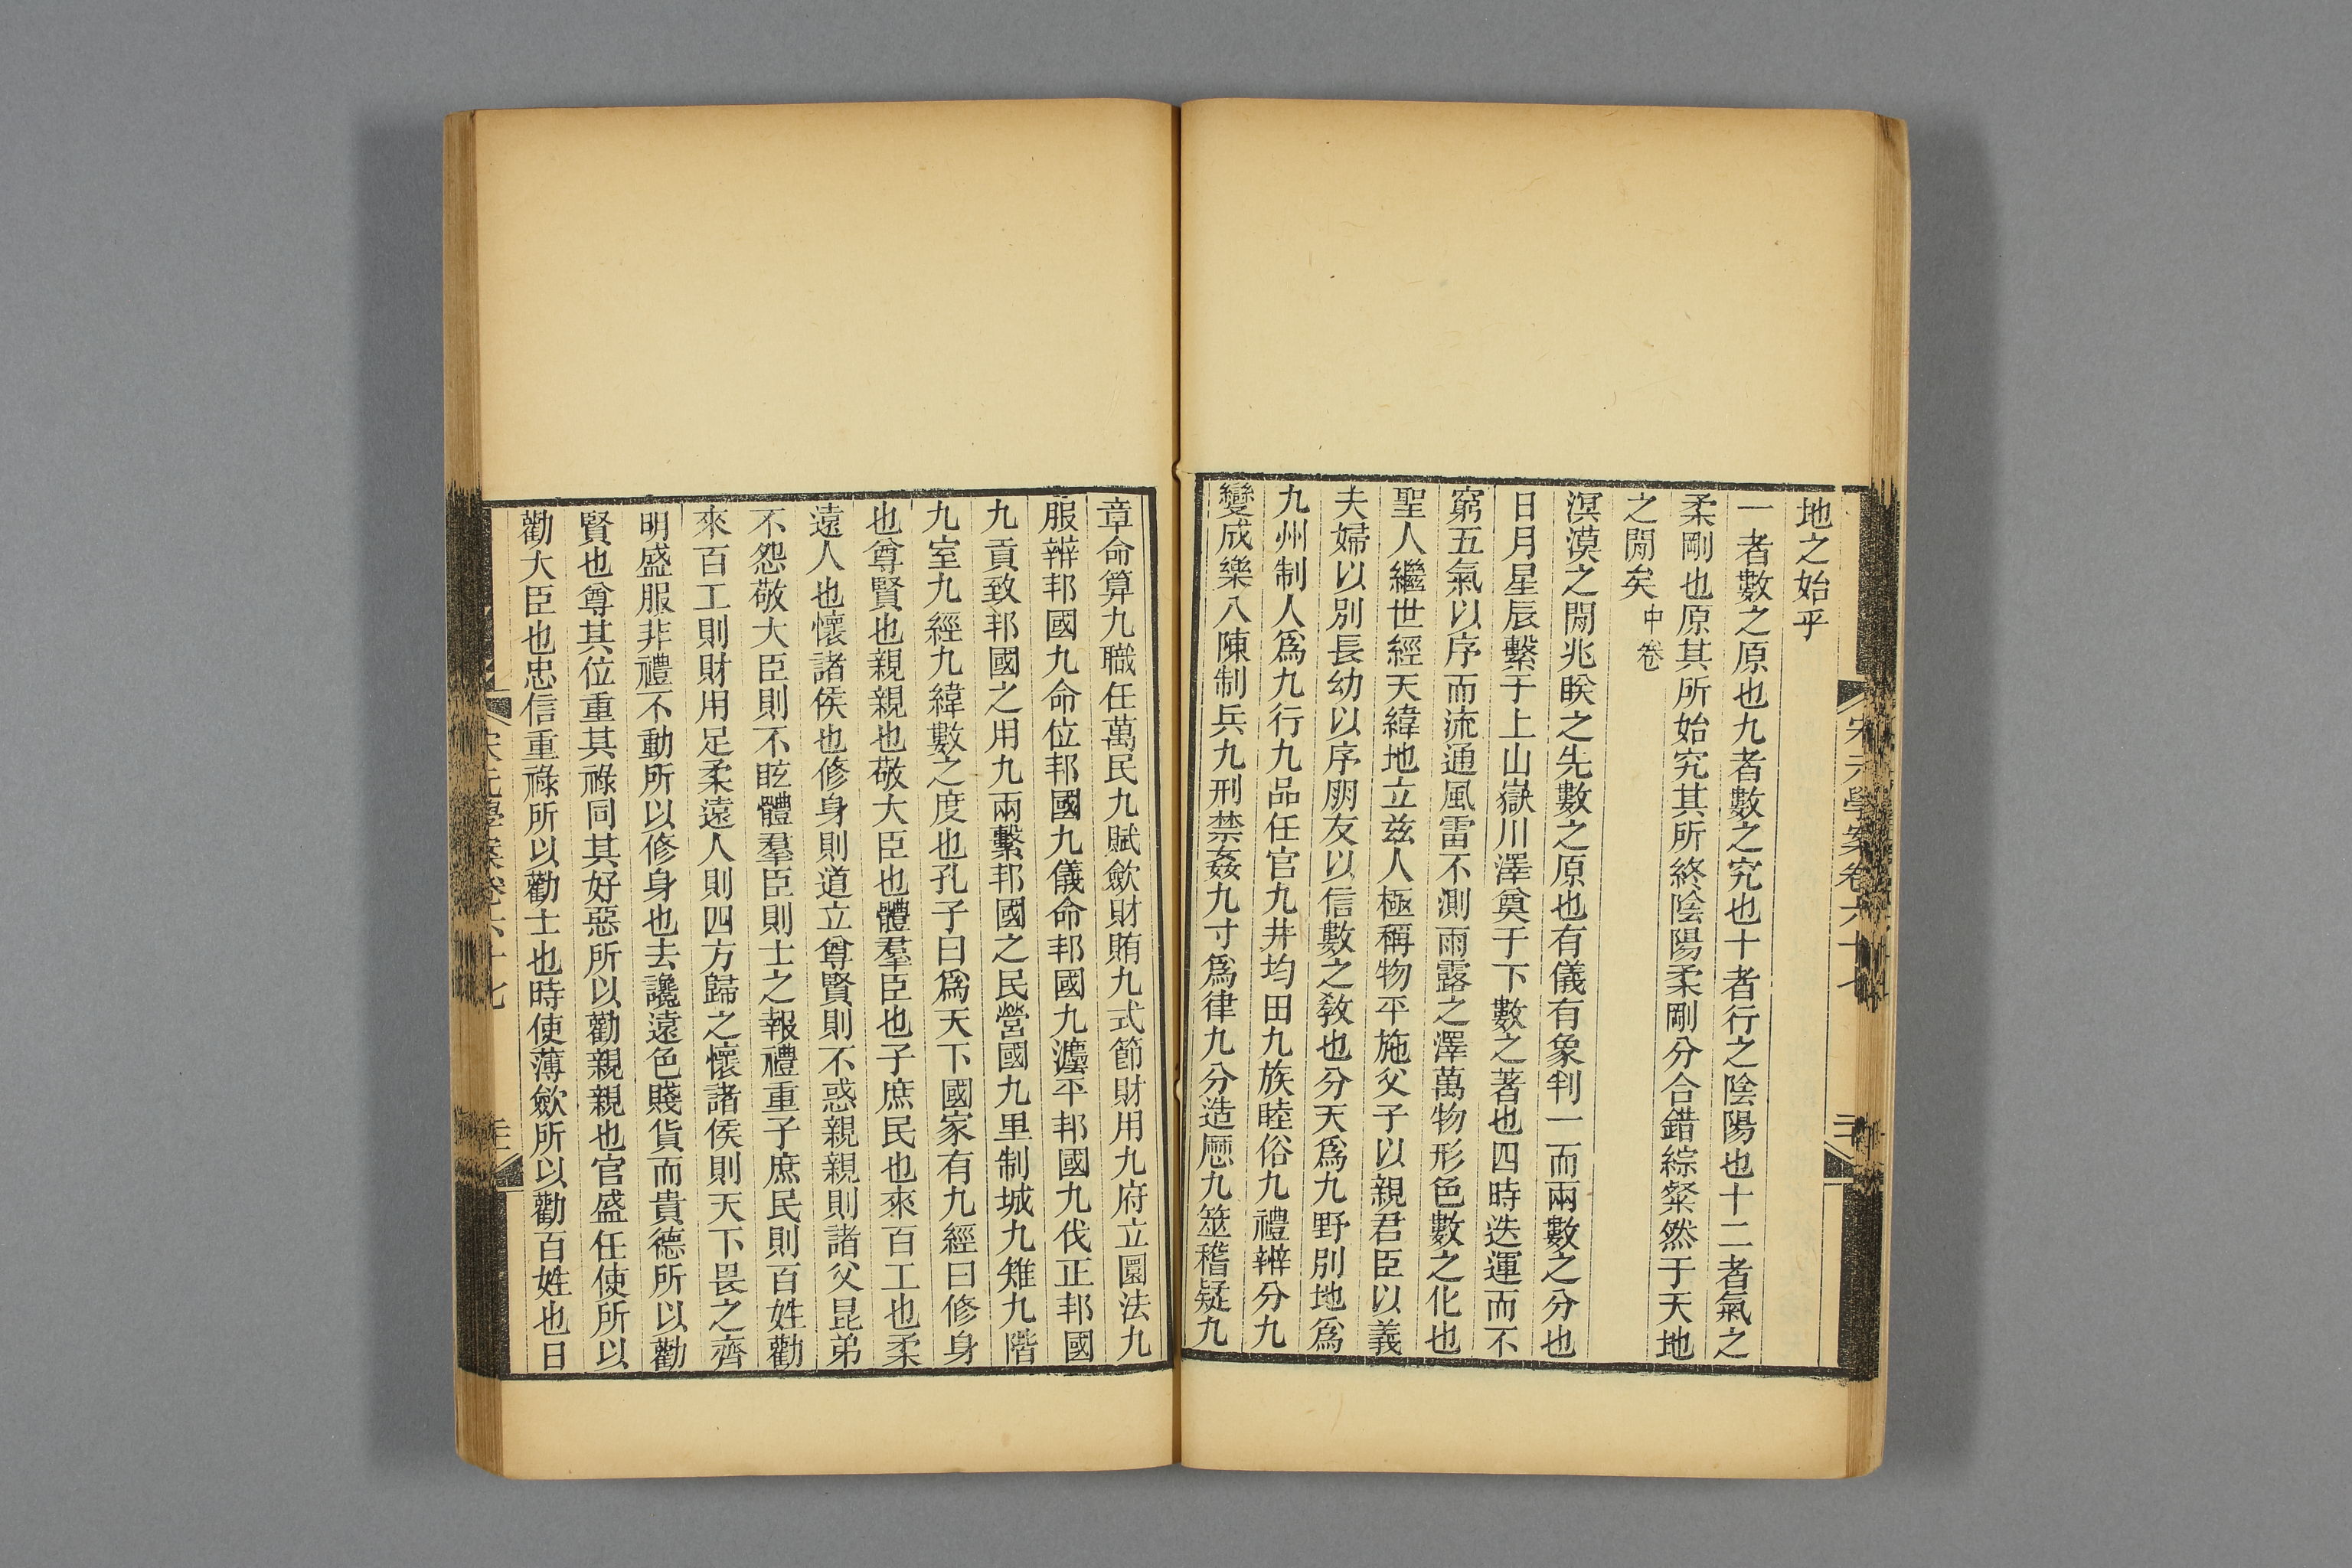 地之始乎
一者數之原也九者數之究也十者行之陰陽也十二者氣之
柔剛也原其所始究其所終陰陽柔剛分合錯綜粲然于天地
之閒矣中卷
溟漠之閒兆眹之先數之原也有儀有象判一而兩數之分也
日月星辰繫于上山嶽川澤奠于下數之著也四時迭運而不
窮五氣以序而流通風雷不測雨露之澤萬物形色數之化也
聖人繼世經天緯地立兹人極稱物平施父子以親君臣以義
夫婦以別長幼以序朋友以信數之敎也分天爲九野別地爲
九州制人爲九行九品任官九井均田九族睦俗九禮辨分九
變成樂八陳制兵九刑禁姦九寸爲律九分造厯九筮稽疑九
章命算九職任萬民九賦斂財賄九式節財用九府立圜法九
服辨邦國九命位邦國九儀命邦國九灋平邦國九伐正邦國
九貢致邦國之用九兩繫邦國之民營國九里制城九雉九階
九室九經九緯數之度也孔子曰爲天下國家有九經曰修身
也尊賢也親親也敬大臣也體羣臣也子庶民也來百工也柔
遠人也懷諸侯也修身則道立尊賢則不惑親親則諸父昆弟
不怨敬大臣則不眩體羣臣則士之報禮重子庶民則百姓勸
來百工則財用足柔遠人則四方歸之懷諸侯則天下畏之齊
明盛服非禮不動所以修身也去讒遠色賤貨而貴德所以勸
賢也尊其位重其祿同其好惡所以勸親親也官盛任使所以
勸大臣也忠信重祿所以勸士也時使薄斂所以勸百姓也日
宋元學案卷六十七